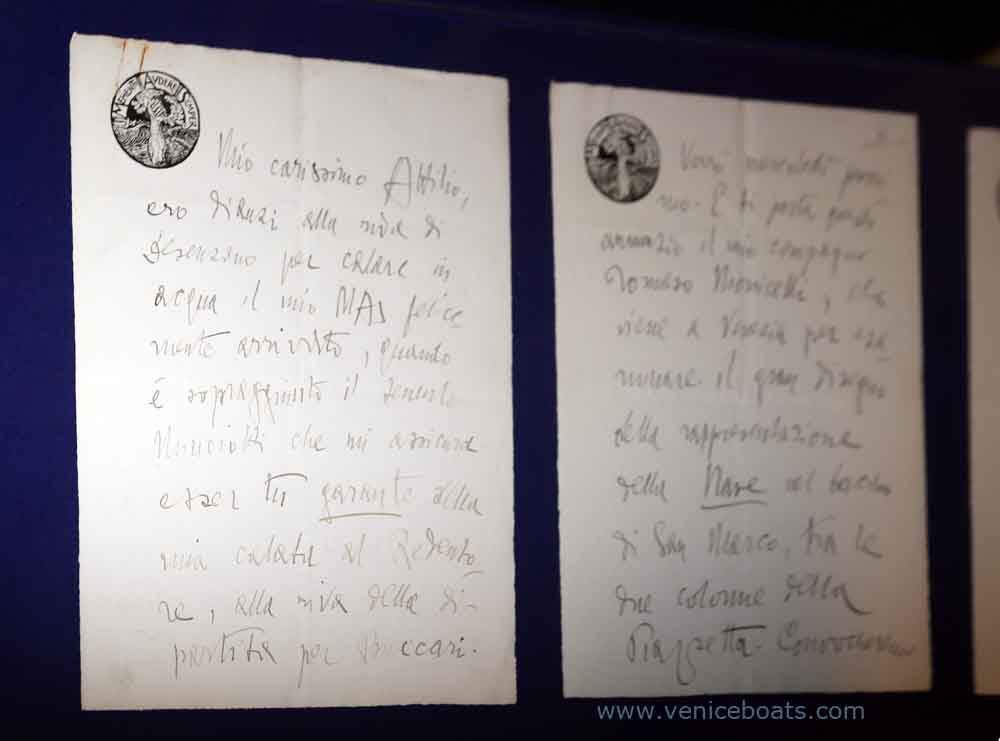 MEMENTO AUDERE SEMPER
Mio carissimo Attilio,
ero dianzi alla riva di
Desenzano per calare in
acqua il mio MAS felice
mente arrivato, quando
è sopraggiunto il tenente
che mi assicura
esser tu garante della
mia calata al Redento-
re, alla riva della di-
partita per Buccari.
Verrò mercoledì prossi
mo. E ti porta questo
annunzio il mio compagno
Tomaso Monicelli, che
viene a Venezia per esa-
minare il gran disegno
della rappresentazione
della Nave nel bacino
di San Marco, tra le
due colonne della
Piazzetta.
www.veniceboats.com